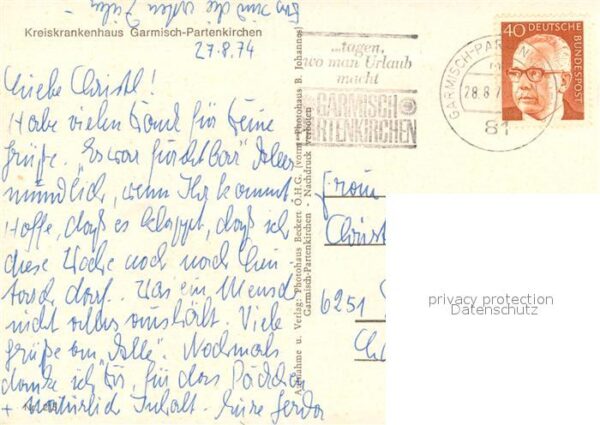 Kreiskrankenhaus Garmisch-Partenkirchen
27.8.74
Liebe Christl!
Habe vielen Dank für Deine
Grüße. "Es war furchtbar" Alles
mündlich, wenn Ihr kommt.
Hoffe, daß es klappt, daß ich
diese Woche noch nach
darf. Was ein Mensch
nicht alles aushält. Viele
Grüße an "Alle". Nochmals
danke ich Dir, für das Päckchen
+ natürlich Inhalt. Eure Gerda
Aufnahme u. Verlag: Photohaus Beckert O.H.G. (vorm. Photohaus B. Johannes)
Garmisch-Partenkirchen Nachdruck verboten
...tagen,
wo man Urlaub
macht
GARMISCH
PARTENKIRCHEN
GARMISCH-PARTENKI
28.8.7
81
40 DEUTSCHE
BUNDESPOST
Frau
Christ
6251
privacy protection
Datenschutz